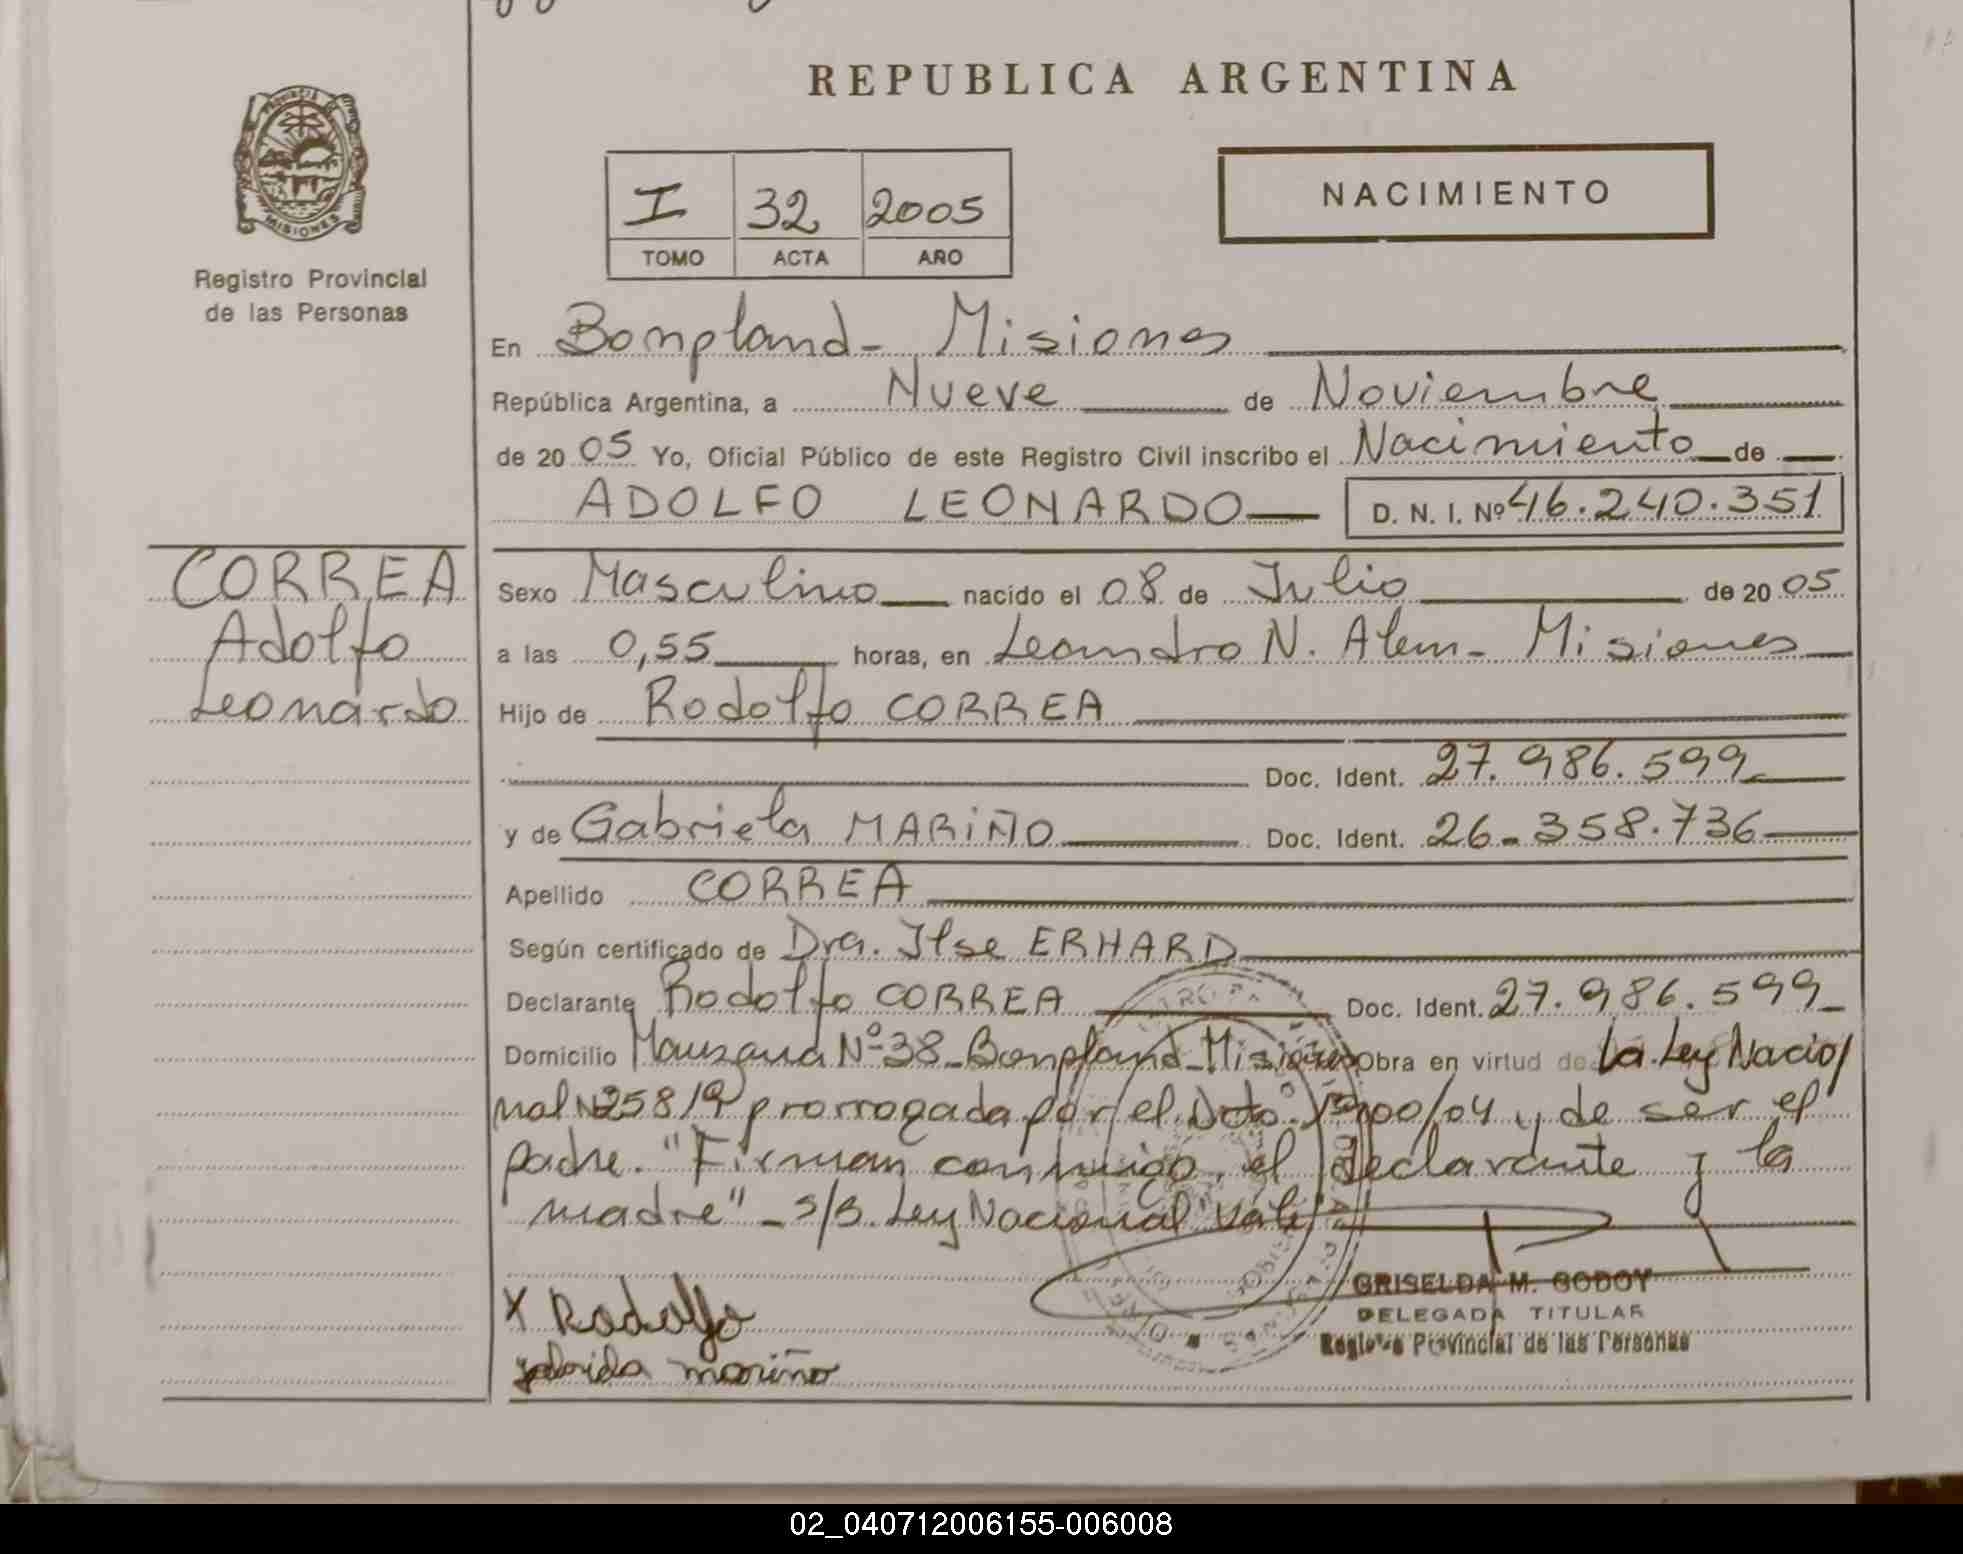 REPUBLICA ARGENTINA
PROVINCIA DE
MISIONES
Registro Provincial
de las Personas
I 32 2005
TOMO ACTA AÑO
NACIMIENTO
En Bonpland - Misiones
República Argentina, a Nueve de Noviembre
de 2005 Yo, Oficial Público de este Registro Civil inscribo el Nacimiento de
ADOLFO LEONARDO D. N. I. Nº 46.240.351
CORREA
Adolfo
Leonardo
Sexo Masculino nacido el 08 de Julio de 2005
a las 0,55 horas, en Leandro N. Alem - Misiones
Hijo de Rodolfo CORREA
Doc. Ident. 27.986.599
y de Gabriela MARIÑO Doc. Ident. 26-358.736
Apellido CORREA
Según certificado de Dra. Ilse ERHARD
Declarante Rodolfo CORREA Doc. Ident. 27.986.599
Domicilio Manzana Nº 38 - Bonpland - Misiones Obra en virtud de La Ley Nacio/
nal Nº 25819 prorrogada por el Dcto. 1900/04 y de ser el
padre. "Firman conmigo, el declarante y la
madre" - s/b. Ley Nacional Vale/
X Rodolfo
gabriela mariño
GRISELDA M. GODOY
DELEGADA TITULAR
Registro Provincial de las Personas
02_040712006155-006008